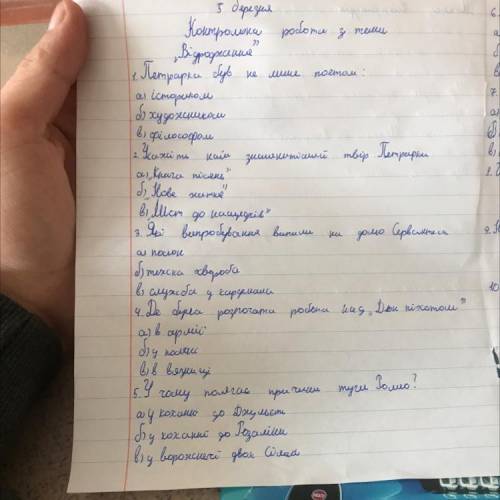 5 березня
Контрольна робота з теми
„Відродження"
1. Петрарка був не лише поетом:
а) істориком
б) художником
в) філософом
2. Укажіть найзнаменитіший твір Петрарки
а) „Книга пісень"
б) „Нове життя"
в) „Лист до нащадків"
3. Які випробування випали на долю Сервантеса
а) полон
б) тяжка хвороба
в) служба у кардинала
4. Де була розпочата робота над „Дон Кіхотом"
а) в армії
б) у полоні
в) в вязниці
5. У чому полягає причина туги Ромео?
а) у коханні до Джульєт
б) у коханні до Розаліни
в) у ворожнечі двох сімей
6
а)
б
в
7.
а)
б)
в)
8.
9.
10